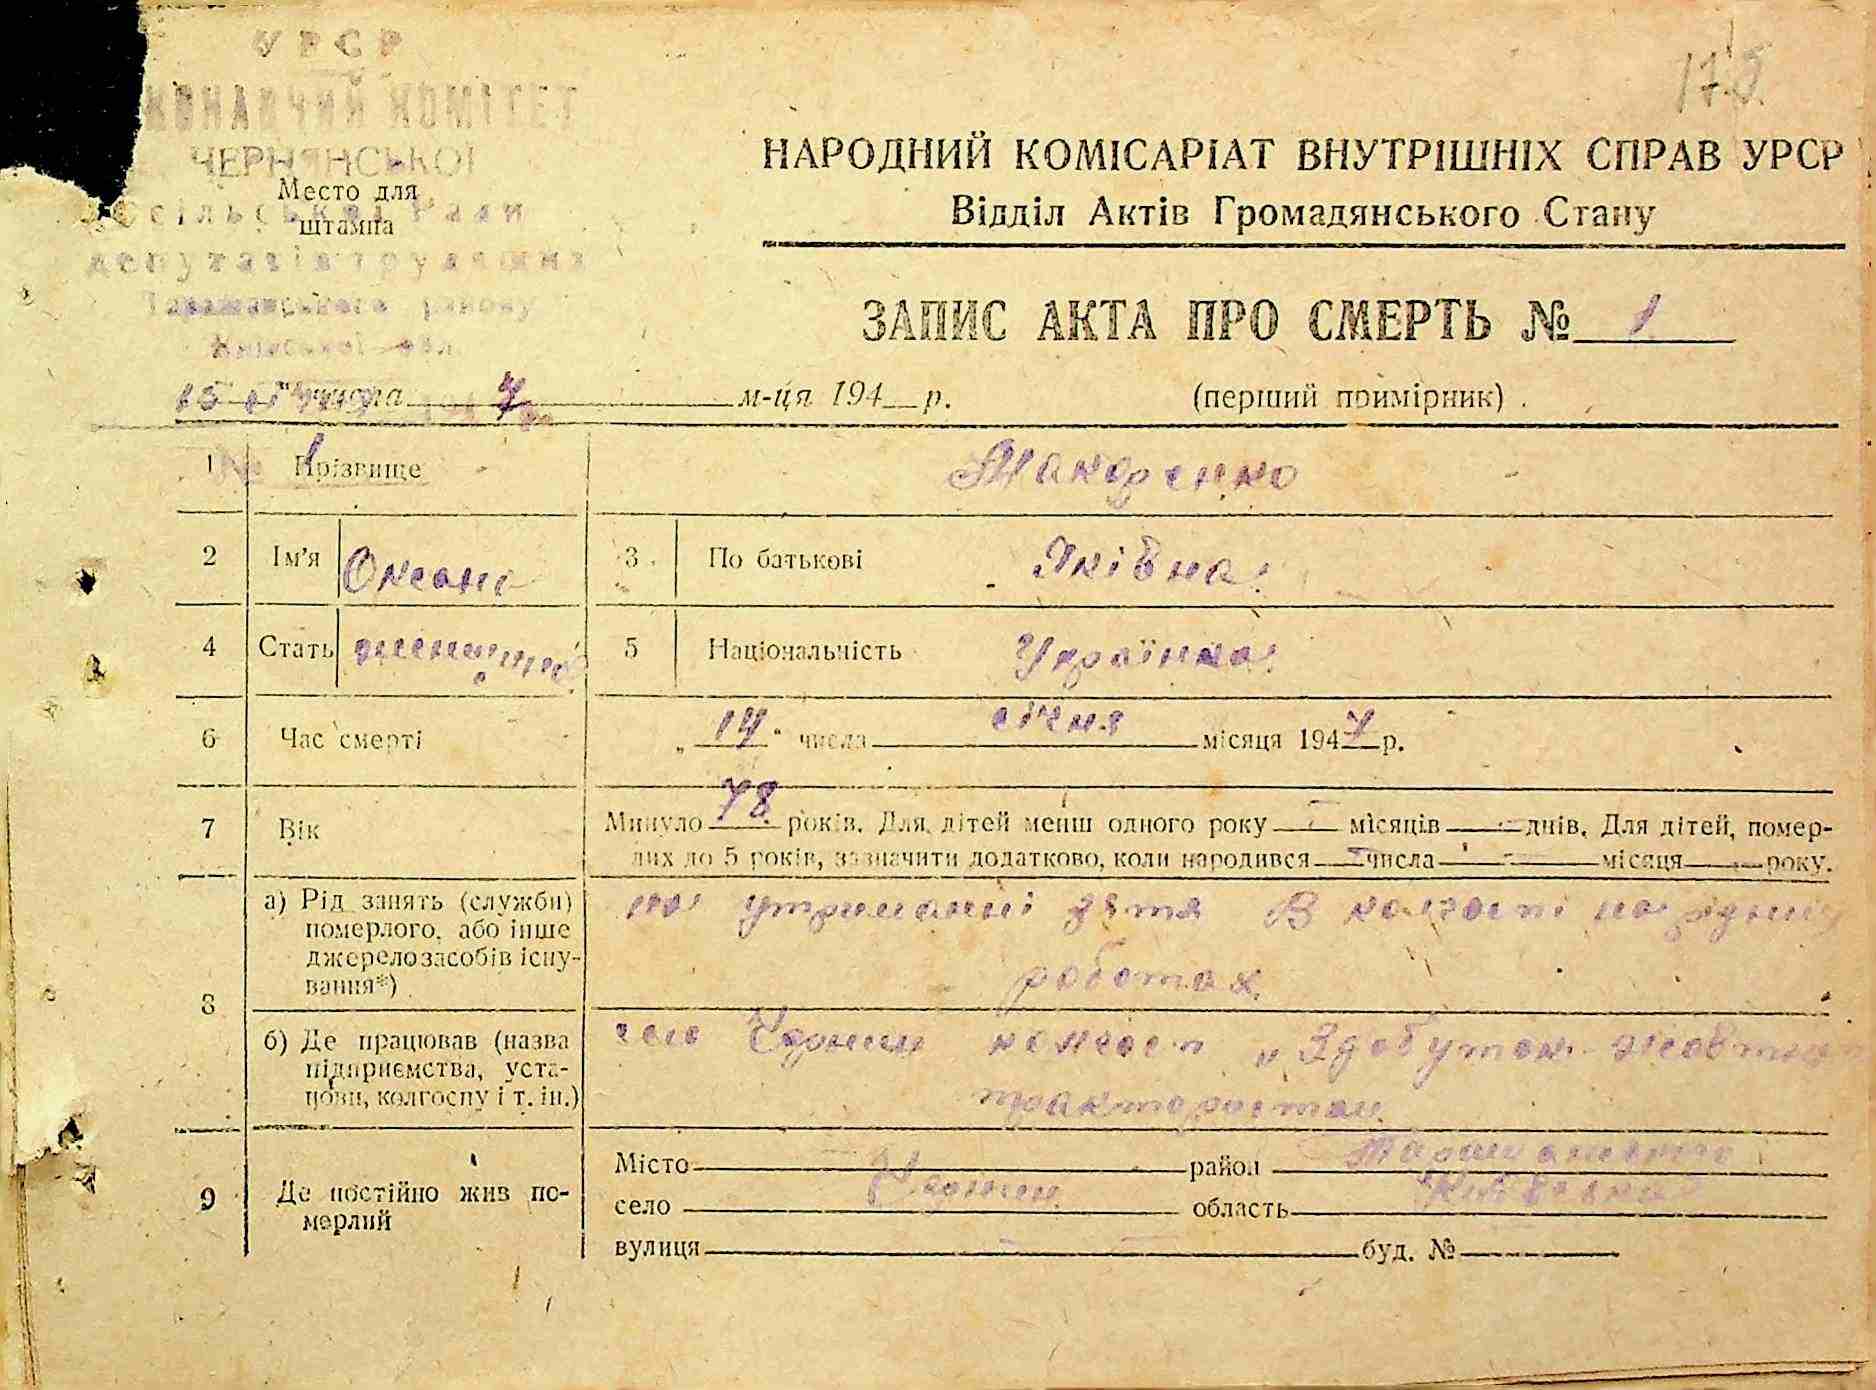 УРСР
КОНАВЧИЙ КОМІТЕТ
ЧЕРНЯНСЬКОЇ
Место для
сільської Ради
штампа
депутатів трудящих
Таращанського району
Київської обл.
175
НАРОДНИЙ КОМІСАРІАТ ВНУТРІШНІХ СПРАВ УРСР
Відділ Актів Громадянського Стану
ЗАПИС АКТА ПРО СМЕРТЬ № 1
15 " числа м-ця 194 р. (перший примірник)
1 Прізвище Макаренко
2 Ім'я Оксана 3 По батькові Яківна
4 Стать женщина 5 Національність Українка
6 Час смерті „14" числа січня місяця 1947 р.
7 Вік Минуло 78 років. Для дітей менш одного року — місяців — днів. Для дітей, помер-
лих до 5 років, зазначити додатково, коли народився — числа — місяця — року.
8 а) Рід занять (служби) померлого, або інше джерело засобів існування*) на утриманні зятя в колгоспі на рідних
роботах
б) Де працював (назва підприємства, установи, колгоспу і т. ін.) село Чернин колгосп „Здобуток Жовтня
9 Де постійно жив померлий
Місто — район Таращанський
село Чернин область Київська
вулиця — буд. № —